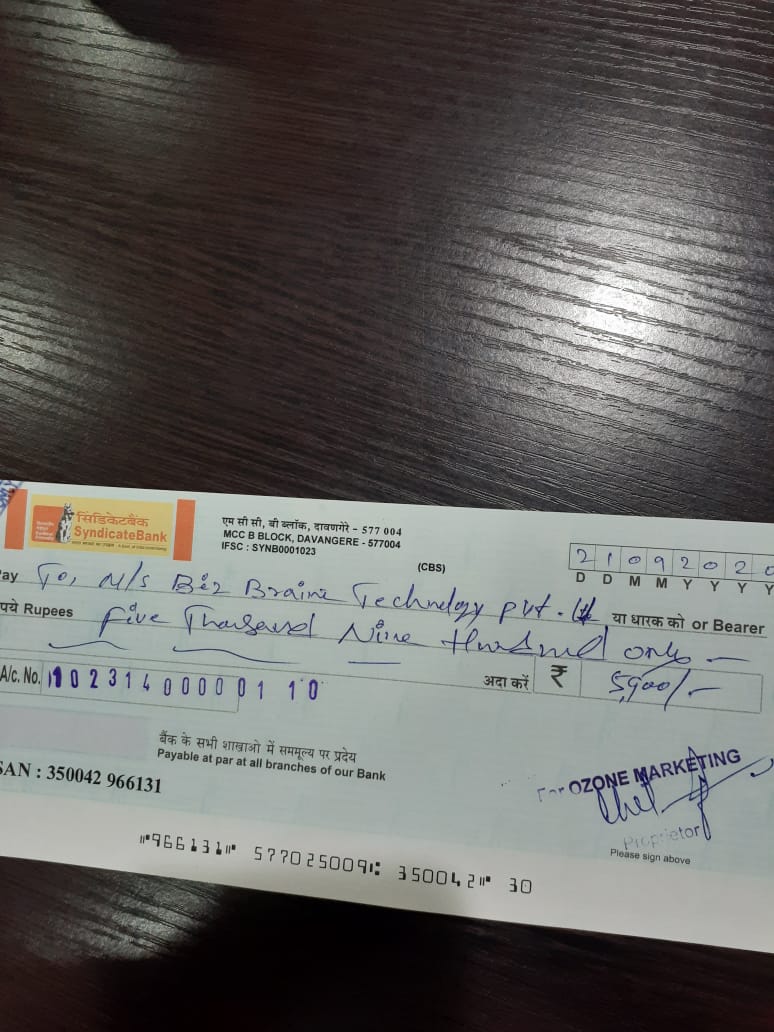 सिंडिकेटबैंक
SyndicateBank
एम सी सी, बी ब्लॉक, दावणगेरे - 577 004
MCC B BLOCK, DAVANGERE - 577004
IFSC : SYNB0001023
(CBS)
2 1 0 9 2 0 2 0
D D M M Y Y Y Y
Pay To, M/s Biz Brainz Technology Pvt. Ltd या धारक को or Bearer
पये Rupees Five Thousand Nine Hundred only —
अदा करें ₹ 5,900/-
A/c. No. 10231400000110
बैंक के सभी शाखाओं में सममूल्य पर प्रदेय
Payable at par at all branches of our Bank
SAN : 350042 966131
For OZONE MARKETING
Proprietor
Please sign above
⑈966131⑈ 577025009⑆ 350042⑈ 30